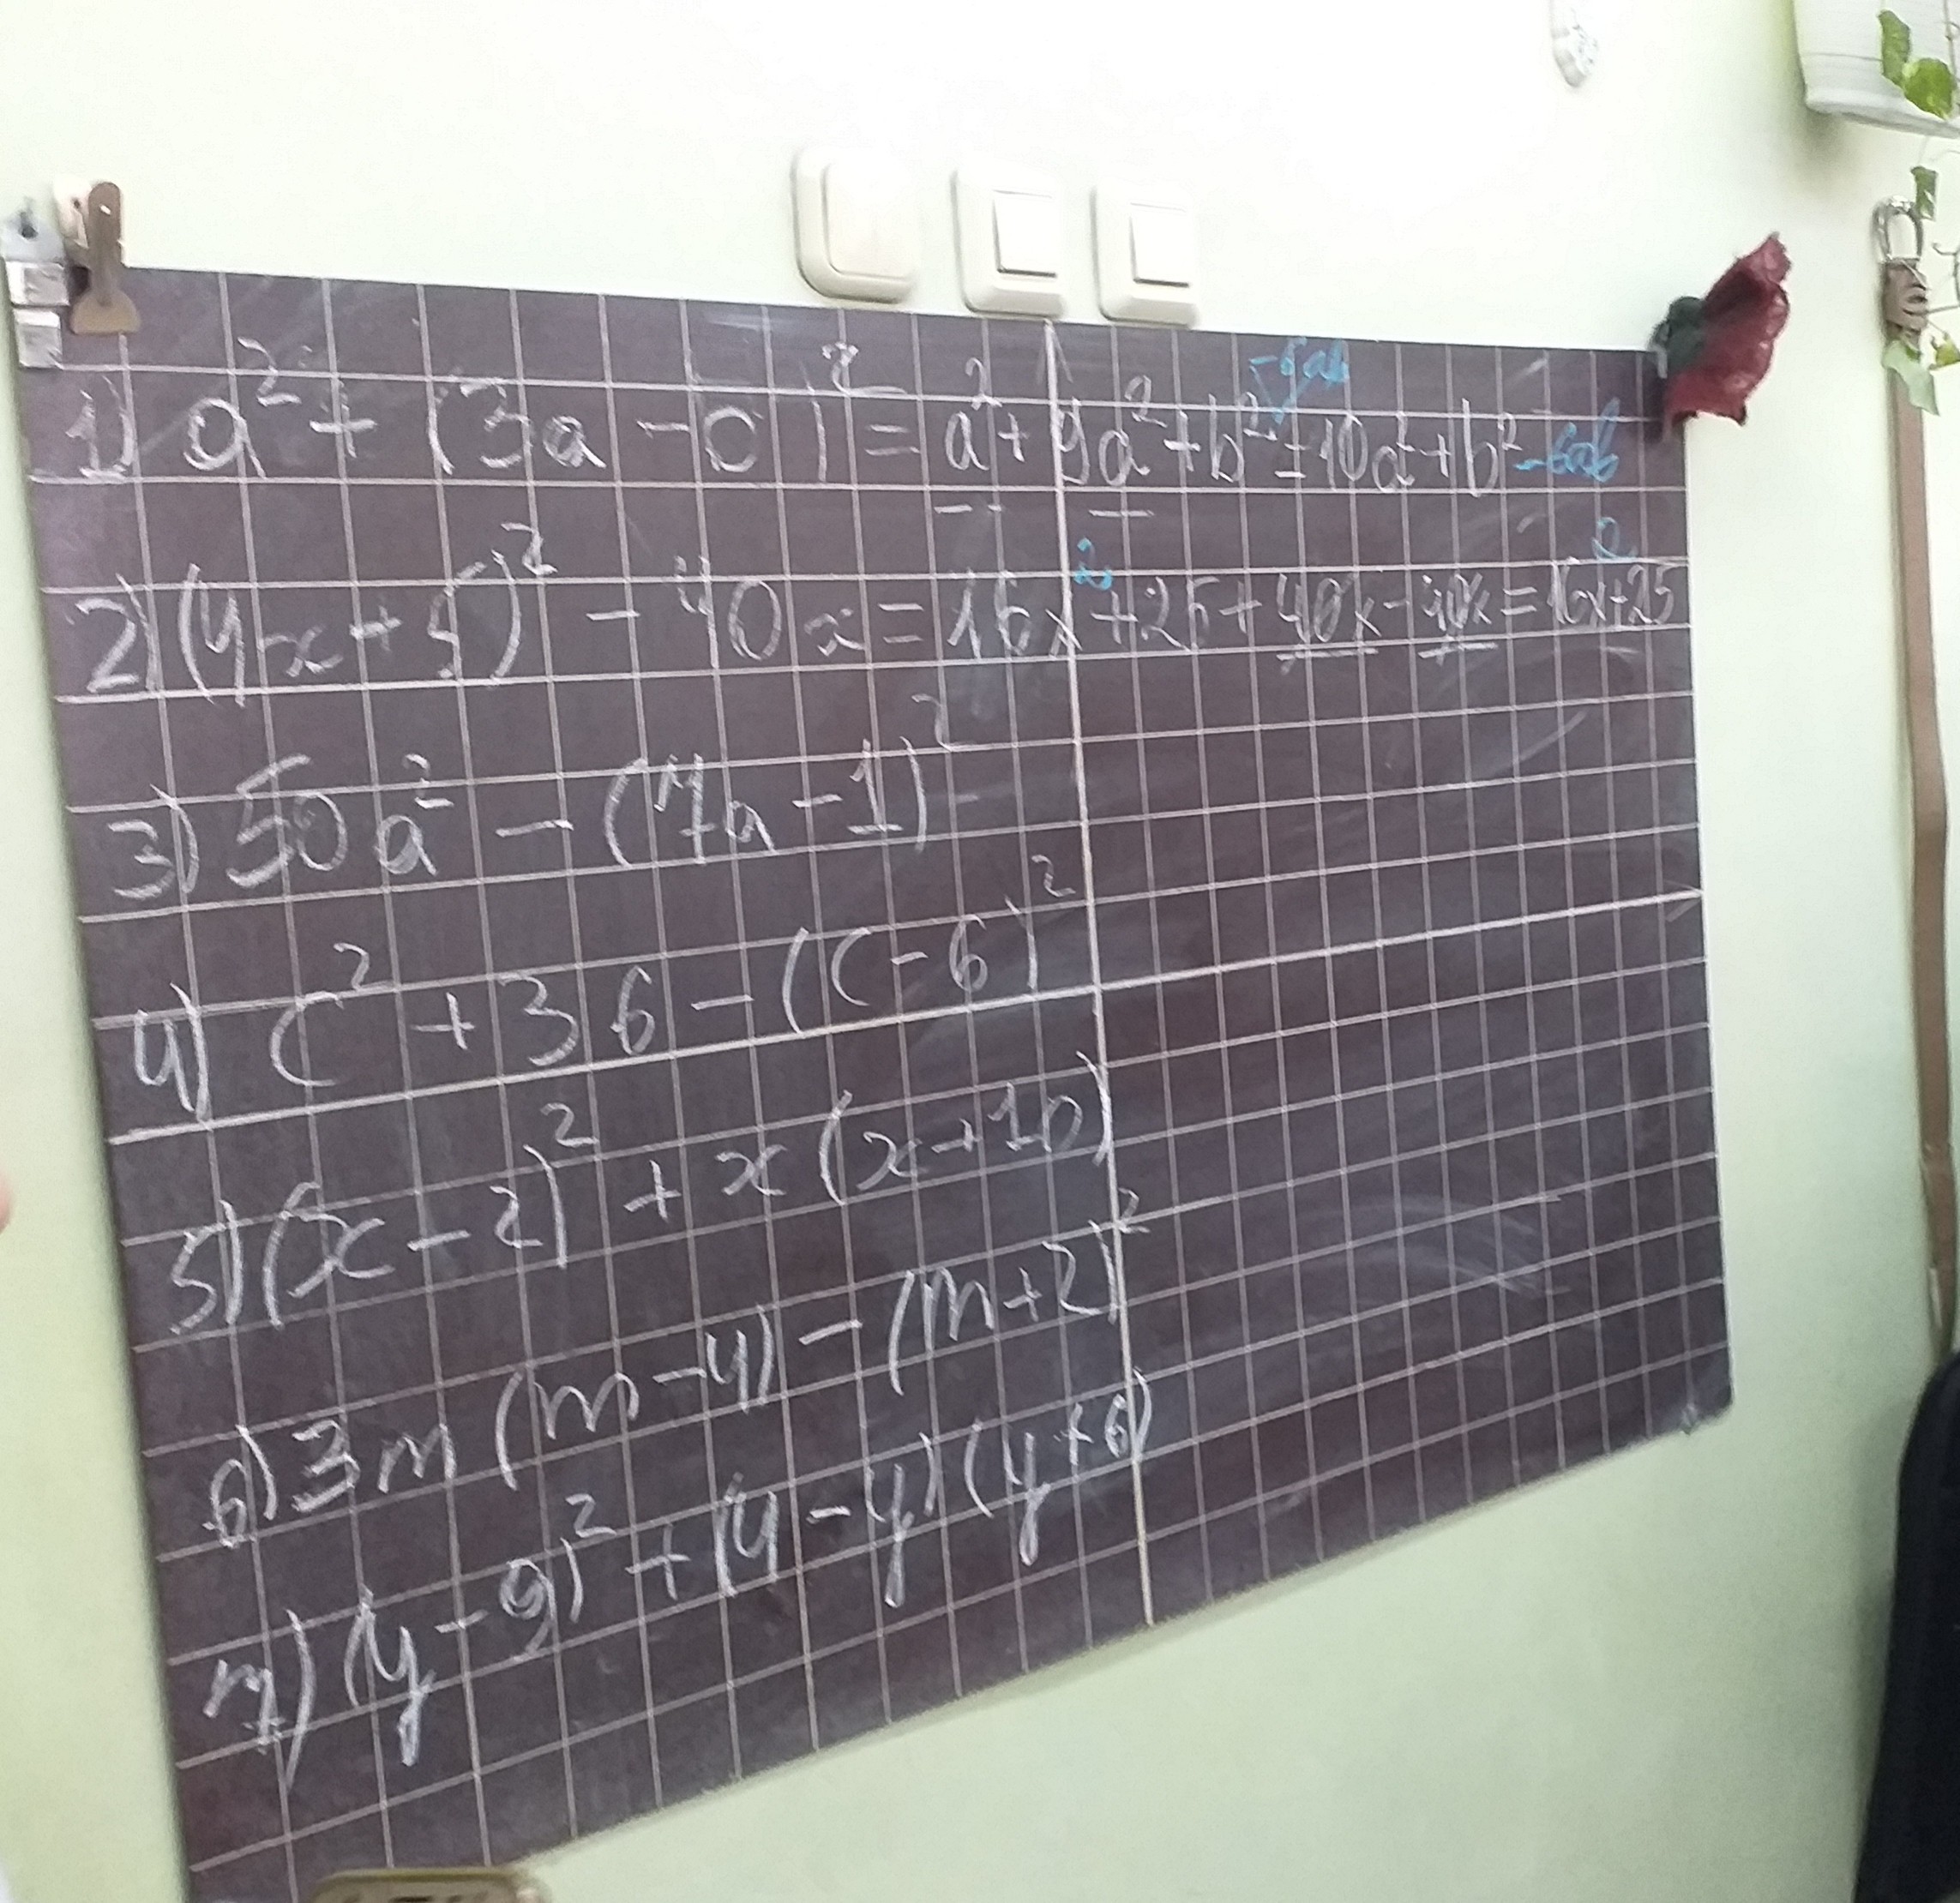 1) a² + (3a - b)² = a² + 9a² + b² -6ab = 10a² + b² -6ab
2) (4x + 5)² - 40x = 16x² + 25 + 40x - 40x = 16x² + 25
3) 50a² - (7a - 1)²
4) c² + 36 - (c - 6)²
5) (x - 2)² + x (x + 10)
6) 3m (m - 4) - (m + 2)²
7) (y - 9)² + (4 - y) (y + 6)